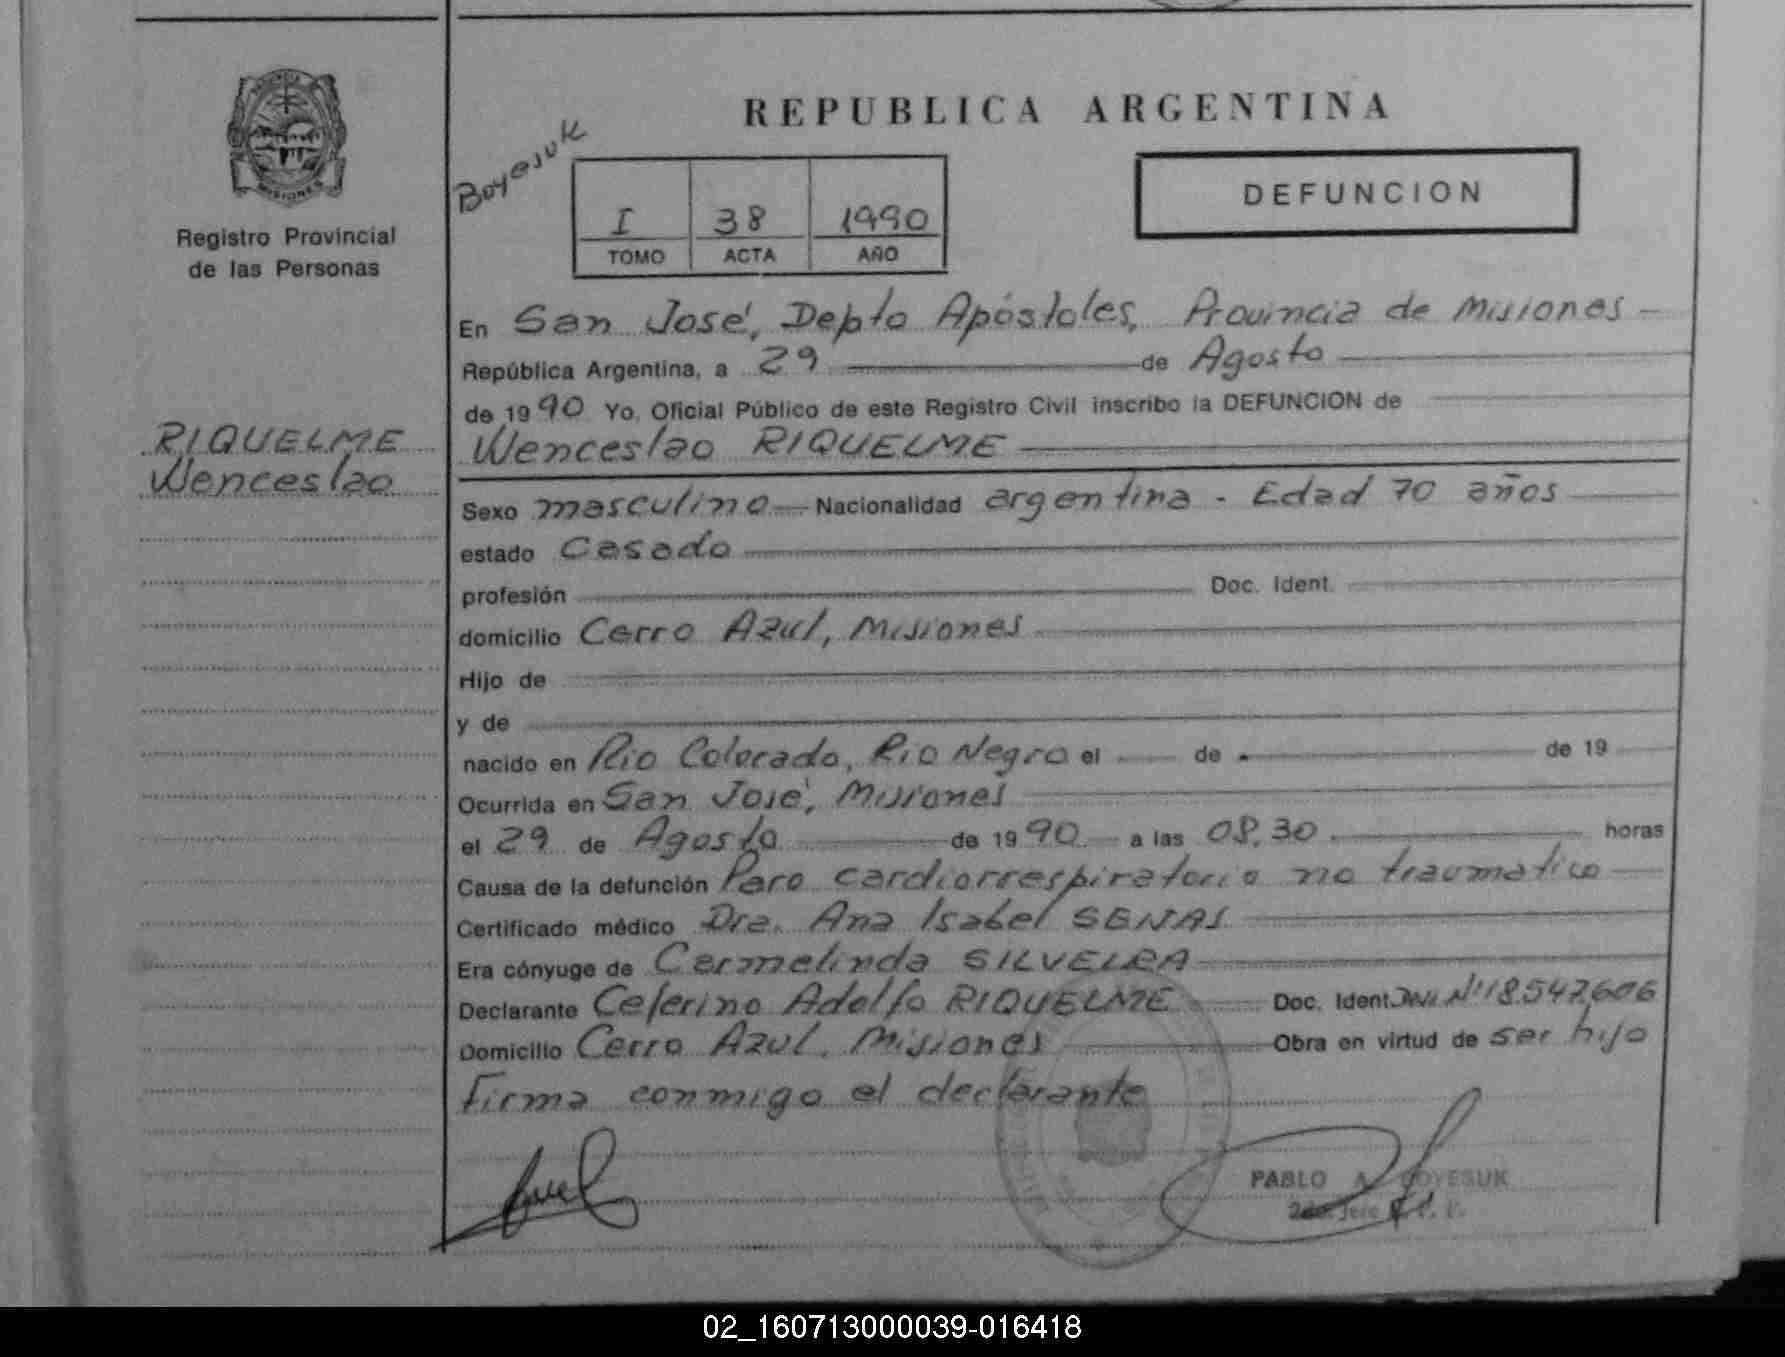 REPUBLICA ARGENTINA
PROVINCIA
MISIONES
Registro Provincial
de las Personas
Boyesuk
I 38 1990
TOMO ACTA AÑO
DEFUNCION
RIQUELME
Wenceslao
En San José, Depto Apóstoles, Provincia de Misiones
República Argentina, a 29 de Agosto
de 1990 Yo, Oficial Público de este Registro Civil inscribo la DEFUNCION de
Wenceslao RIQUELME
Sexo masculino Nacionalidad argentina - Edad 70 años
estado Casado
profesión Doc. Ident.
domicilio Cerro Azul, Misiones
Hijo de
y de
nacido en Rio Colorado, Rio Negro el de de 19
Ocurrida en San José, Misiones
el 29 de Agosto de 1990 a las 08,30 horas
Causa de la defunción Paro cardiorrespiratorio no traumatico
Certificado médico Dra. Ana Isabel SENAS
Era cónyuge de Carmelinda SILVEIRA
Declarante Ceferino Adolfo RIQUELME Doc. Ident. DNI. Nº 18.547.606
Domicilio Cerro Azul, Misiones Obra en virtud de ser hijo
Firma conmigo el declarante
PABLO A. BOYESUK
2do. Jefe
02_160713000039-016418